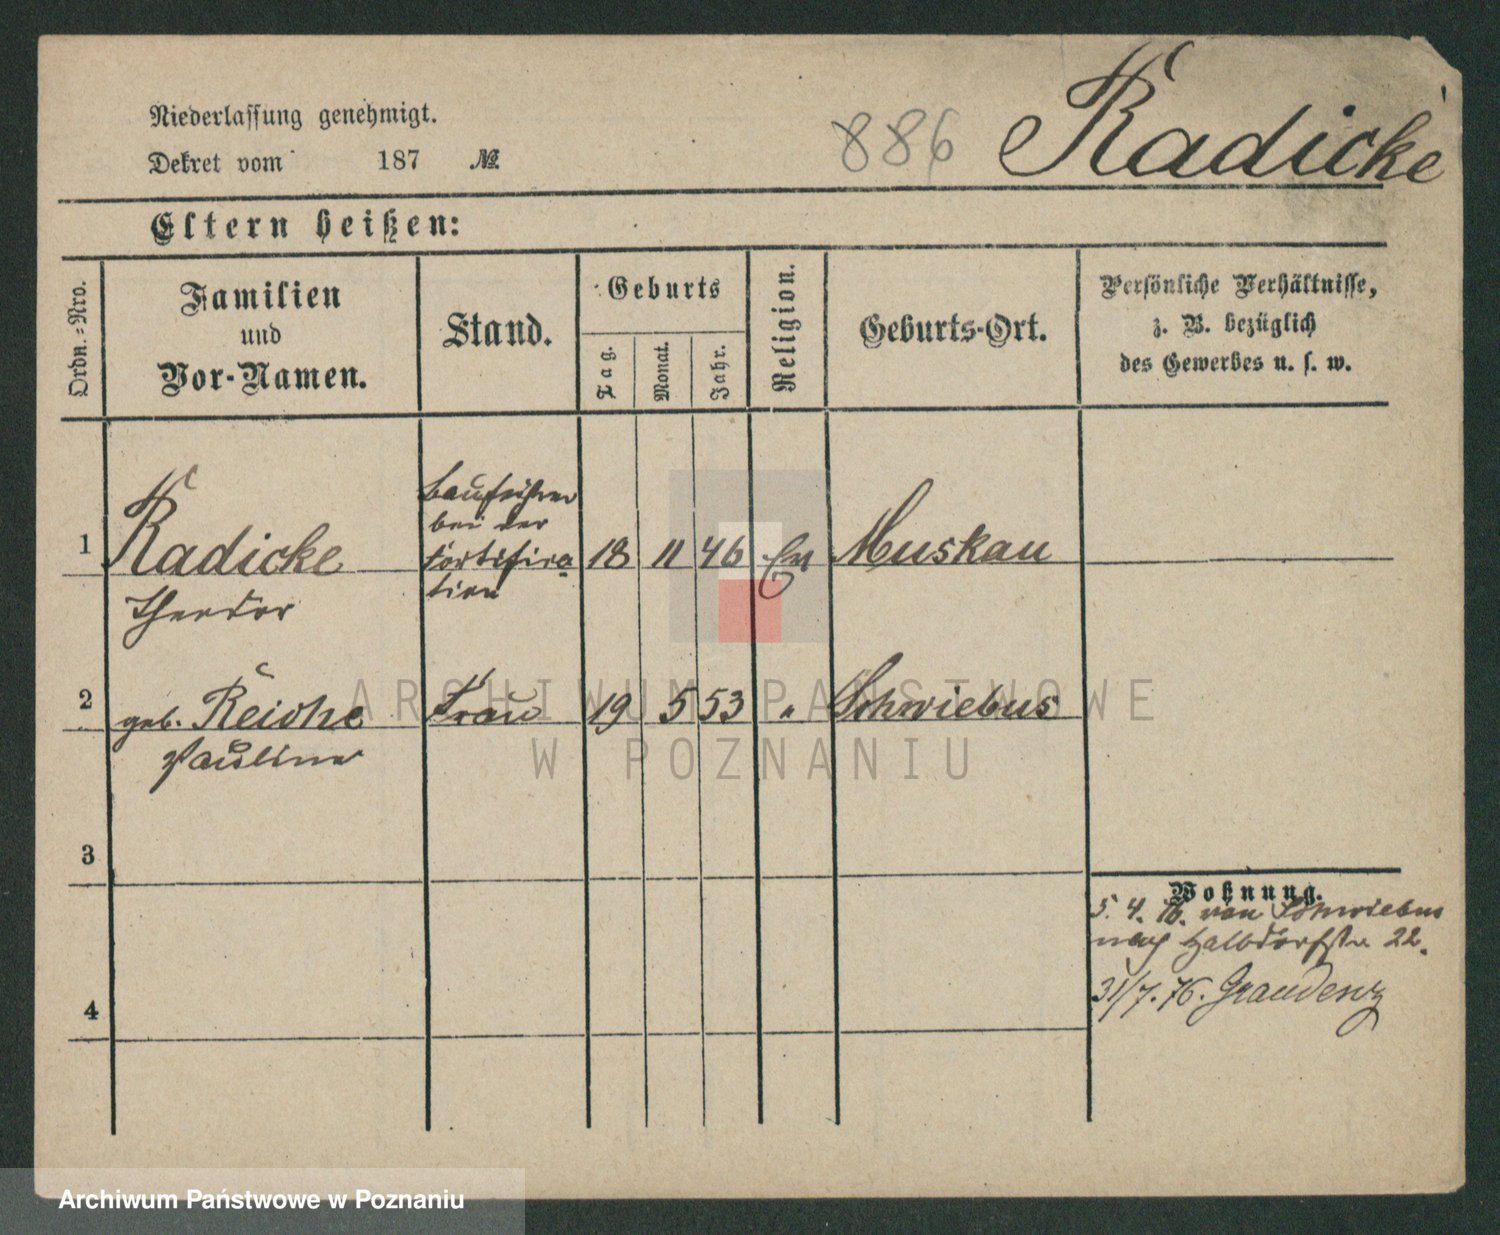 Niederlassung genehmigt.
Dekret vom 187 №
886 Radicke
Eltern heißen:
Ordn.=Nro.
Familien
und
Vor-Namen.
Stand.
Geburts
Tag.
Monat.
Jahr.
Religion.
Geburts-Ort.
Persönliche Verhältnisse,
z. B. bezüglich
des Gewerbes u. s. w.
1
Radicke
Theodor
Bauführer
bei der
Fortifica-
tion
18 11 46 Ev Muskau
2
geb. Reiche
Pauline
Frau
19 5 53 " Schwiebus
3
4
Wohnung.
5. 4. 76. von Schwiebus
nach Halbdorfstr 22.
31/7. 76. Graudenz
ARCHIWUM PAŃSTWOWE
W POZNANIU
Archiwum Państwowe w Poznaniu